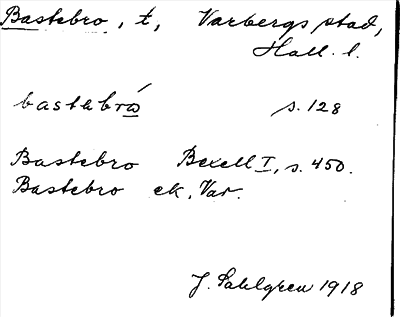 Bastebro, t, Varbergs stad,
Hall. l.
bastebro s. 128
Bastebro Bexell I, s. 450.
Bastebro ek. Var.
J. Sahlgren 1918